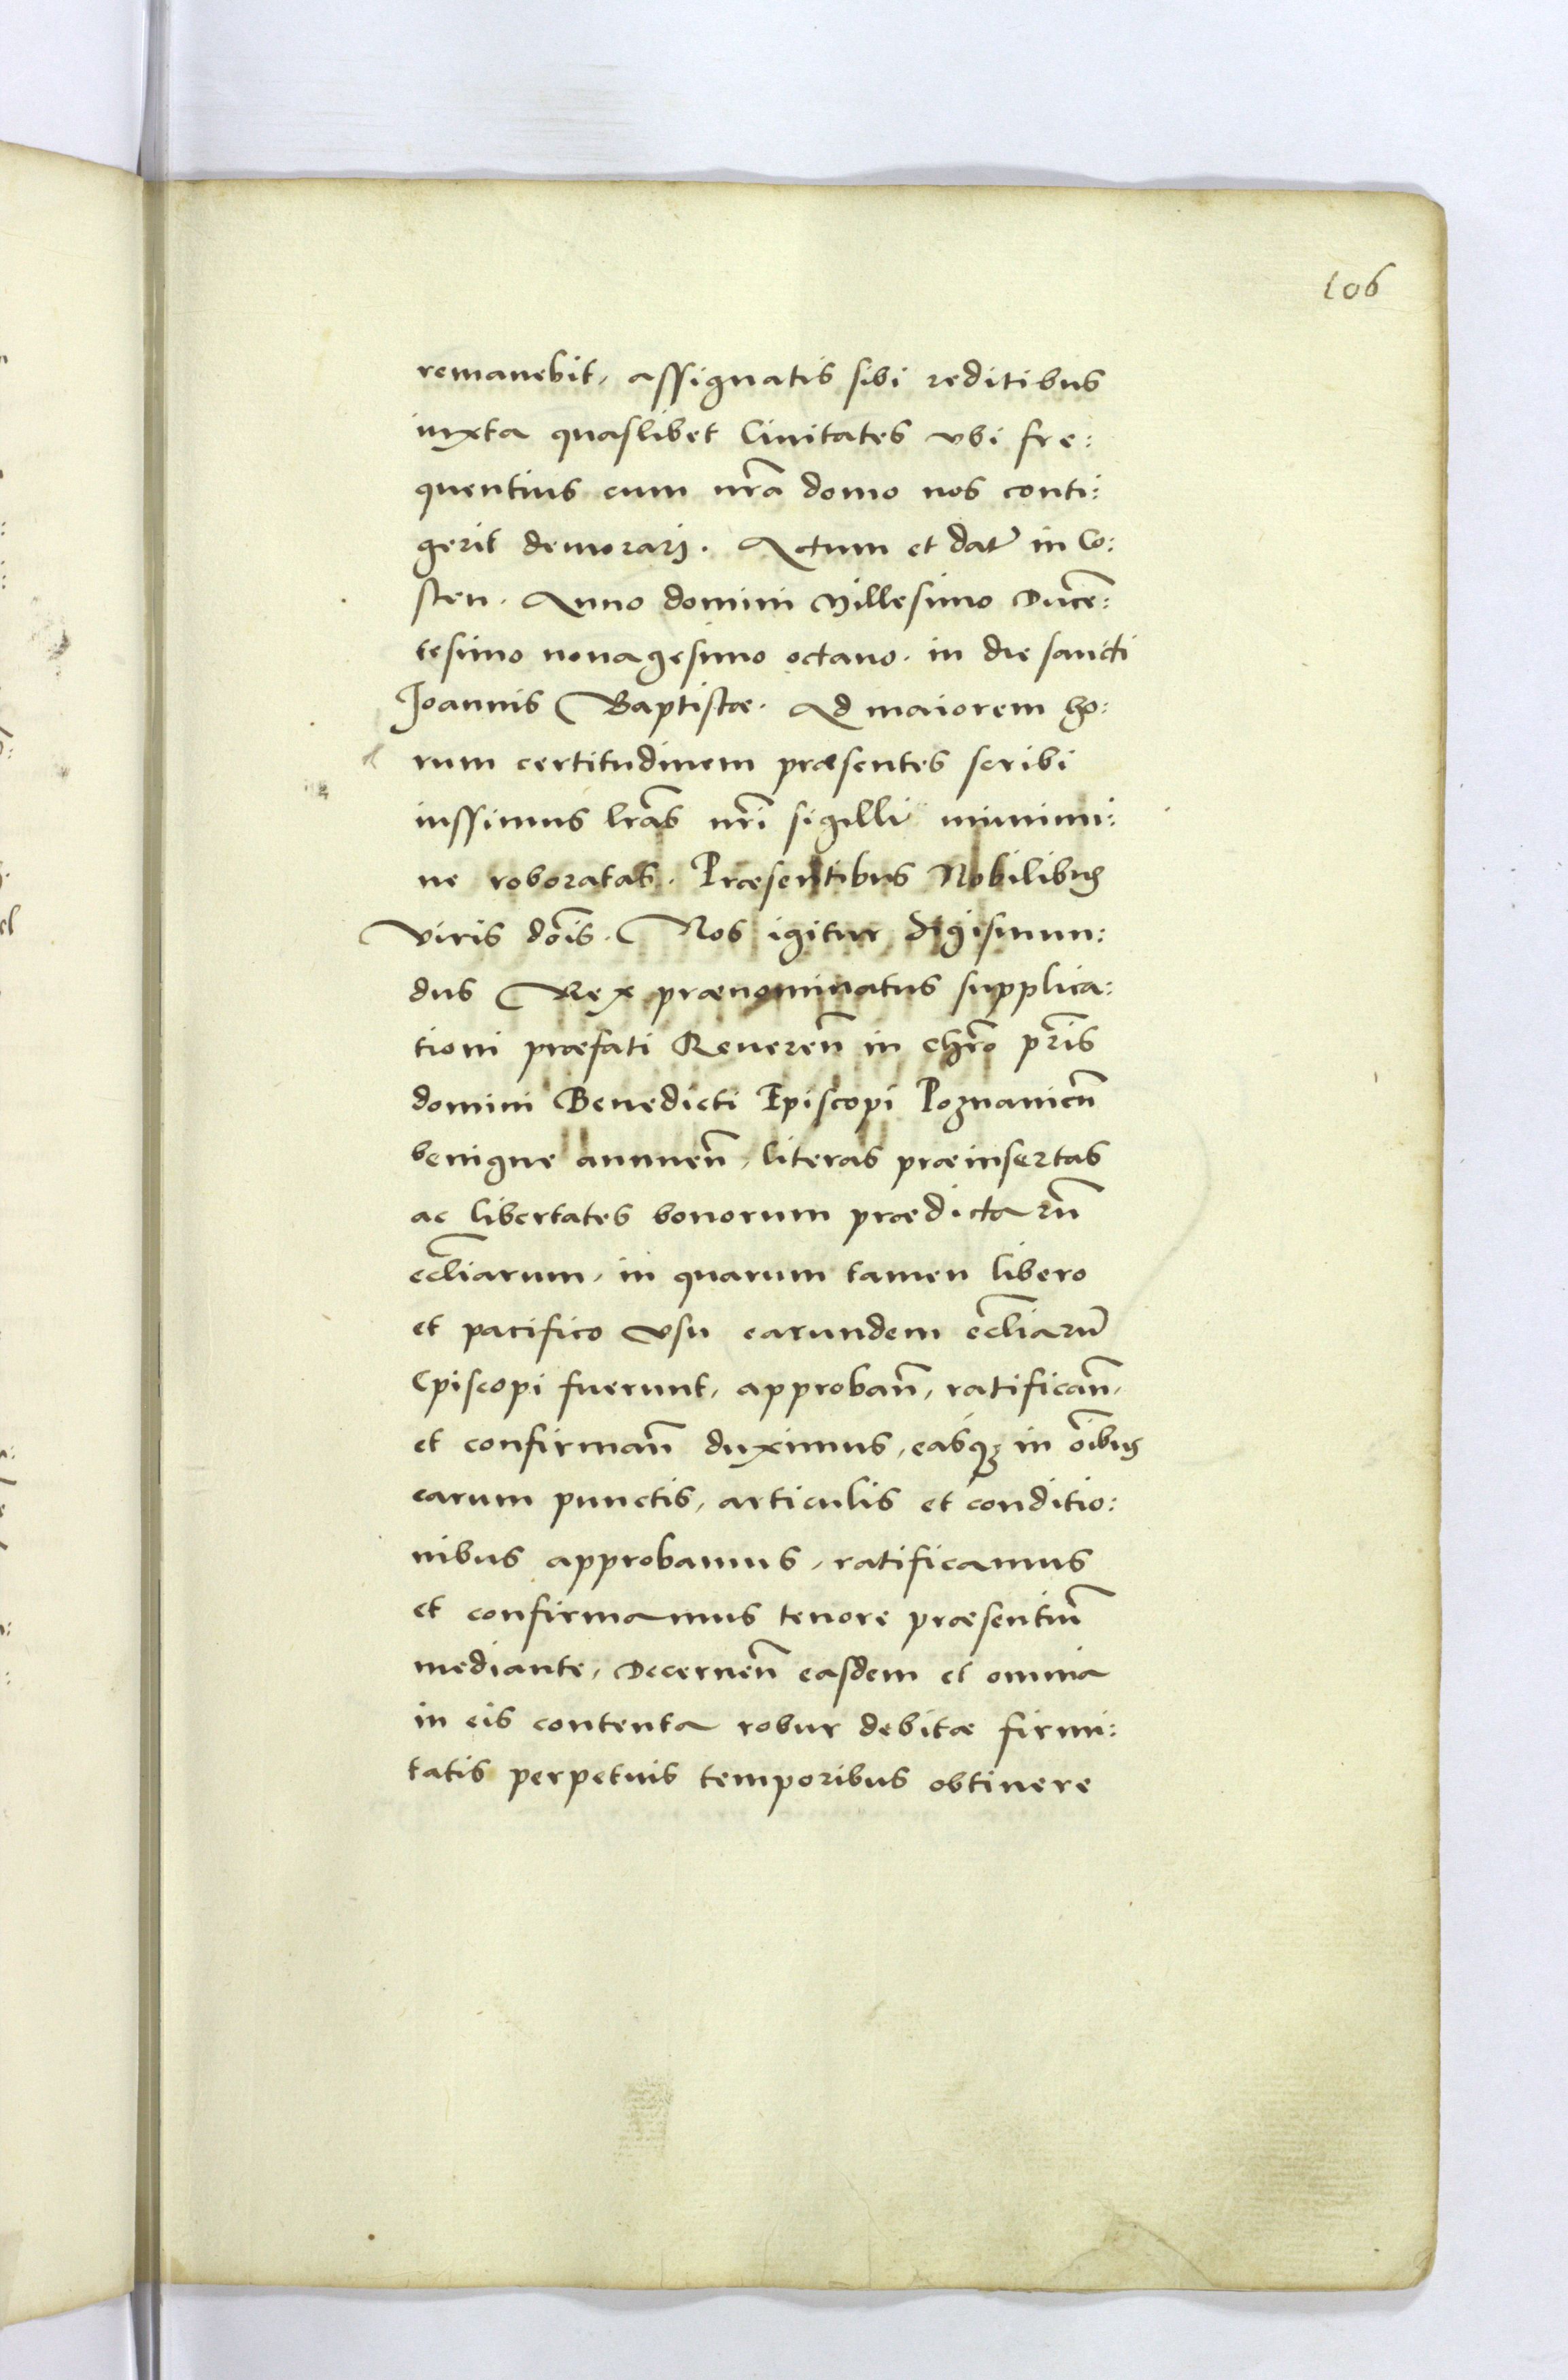 106
remanebit, assignatis sibi reditibus
iuxta quaslibet Ciuitates vbi fre:
quentius cum nr̃a domo nos conti:
gerit demorarj. Actum et datũ in Co:
sten. Anno domini Millesimo Ducẽ:
tesimo nonagesimo octauo. in die sancti
Joannis Baptistæ. Ad maiorem ho:
rum certitudinem præsentes scribi
iussimus lr̃as nr̃i sigilli munimi:
ne roboratas. Præsentibus Nobilibus
viris dõis. Nos igitur Sigismun:
dus Rex prænominatus supplica:
tioni præfati Reuereñ in chr̃o pr̃is
domini Benedicti Episcopi Poznanieñ
benigne annueñ, literas præinsertas
ac libertates bonorum prædictarũ
eccl̃iarum, in quarum tamen libero
et pacifico vsu earundem eccl̃iarũ
Episcopi fuerunt, approbañ, ratificañ,
et confirmañ duximus, easq; in oĩbus
earum punctis, articulis et conditio:
nibus approbamus, ratificamus
et confirmamus tenore præsentiũ
mediante, Decerneñ easdem et omnia
in eis contenta robur debitæ firmi:
tatis perpetuis temporibus obtinere